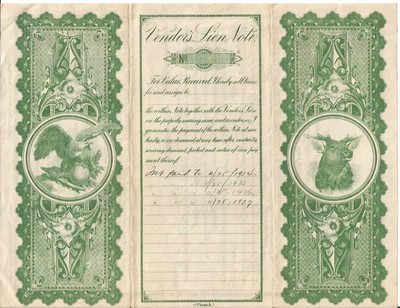 Vendor's Lien Note
No
For Value Received, I hereby sell, transfer and assign to
the within Note together with the Vendor's Lien
on the property securing same, and
guarantee the payment of the within Note at maturity, or on demand at any time after maturity
waiving demand, protest and notice of non payment thereof.
Int paid to 11/25/1924
" " " 11/25/1925
" " " 11/25-1926
" " " 11/25-1927